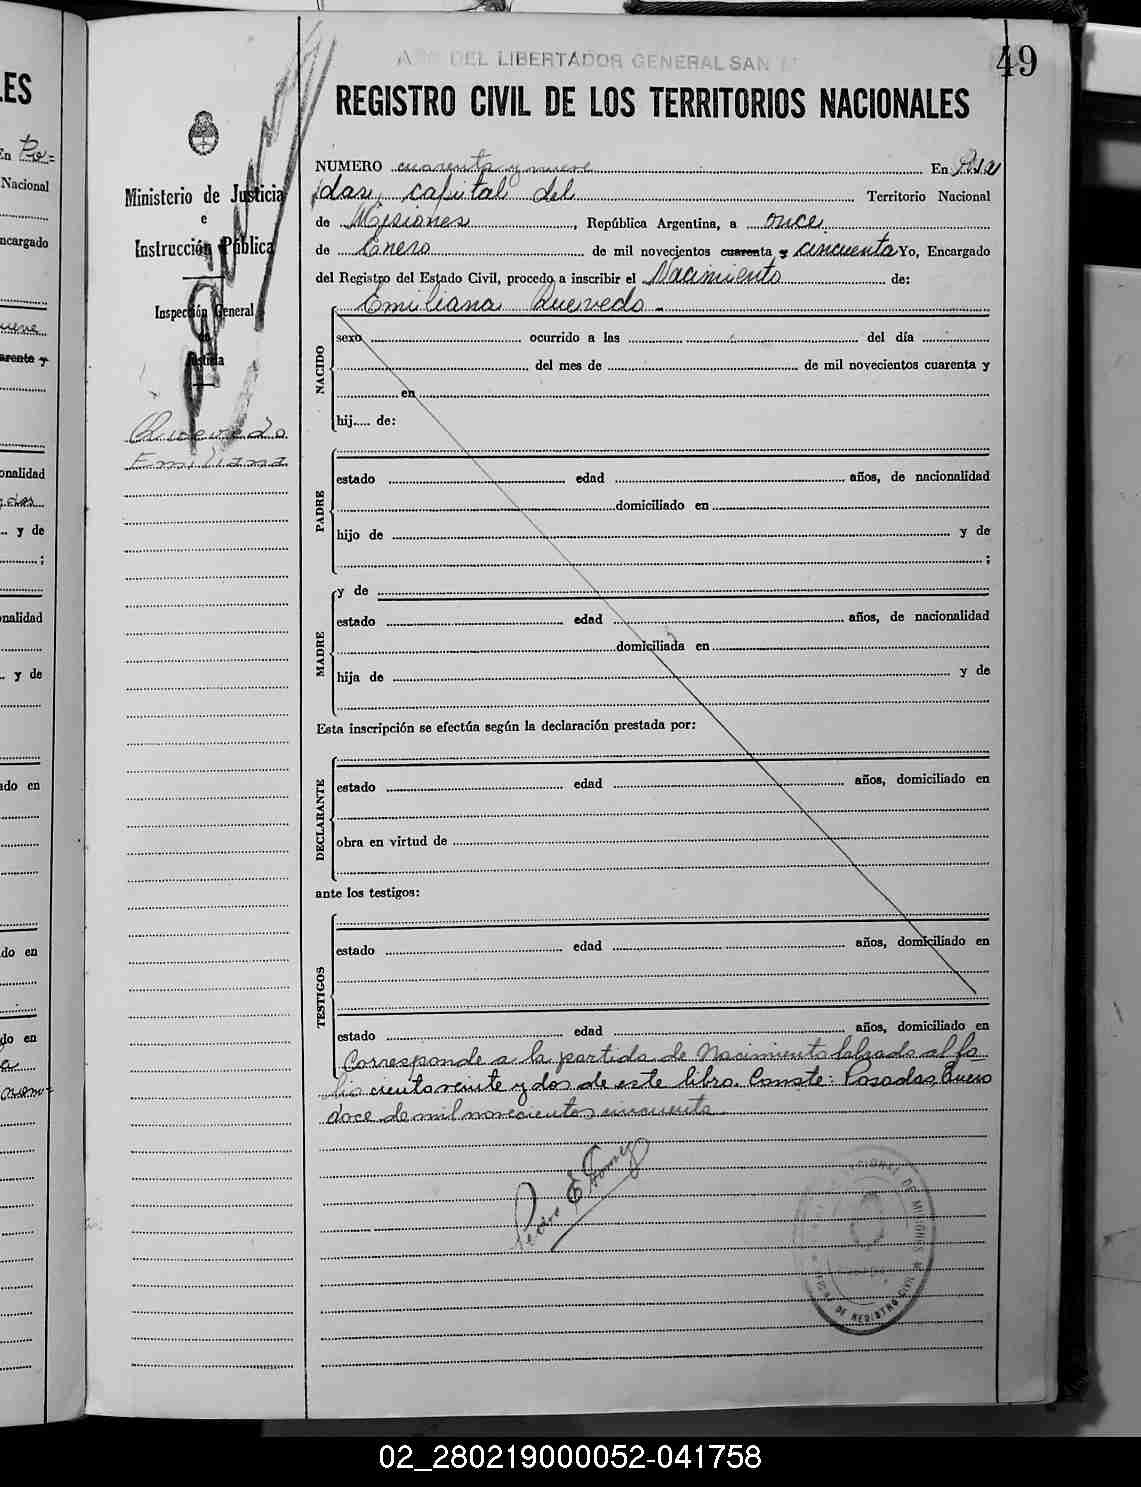 AÑO DEL LIBERTADOR GENERAL SAN M
49
REGISTRO CIVIL DE LOS TERRITORIOS NACIONALES
Ministerio de Justicia
e
Instrucción Pública
Inspección General
de
Justicia
Quevedo
Emiliana
NUMERO cuarenta y nueve En Posa
das, capital del Territorio Nacional
de Misiones, República Argentina, a once
de Enero de mil novecientos cuarenta y cincuenta Yo, Encargado
del Registro del Estado Civil, procedo a inscribir el Nacimiento de:
Emiliana Quevedo.-
NACIDO
sexo ocurrido a las del día
del mes de de mil novecientos cuarenta y
en
hij..... de:
PADRE
estado edad años, de nacionalidad
domiciliado en
hijo de y de
;
MADRE
y de
estado edad años, de nacionalidad
domiciliada en
hija de y de
Esta inscripción se efectúa según la declaración prestada por:
DECLARANTE
estado edad años, domiciliado en
obra en virtud de
ante los testigos:
TESTIGOS
estado edad años, domiciliado en
estado edad años, domiciliado en
Corresponde a la partida de Nacimiento labrada al fo
lio ciento veinte y dos de este libro. Conste: Posadas, Enero
doce de mil novecientos cincuenta.
Pedro E.
DE MISIONES
REGISTRO CIVIL
LES
En Po=
Nacional
ncargado
nueve
arenta y
onalidad
y de
;
onalidad
y de
ado en
do en
do en
02_280219000052-041758